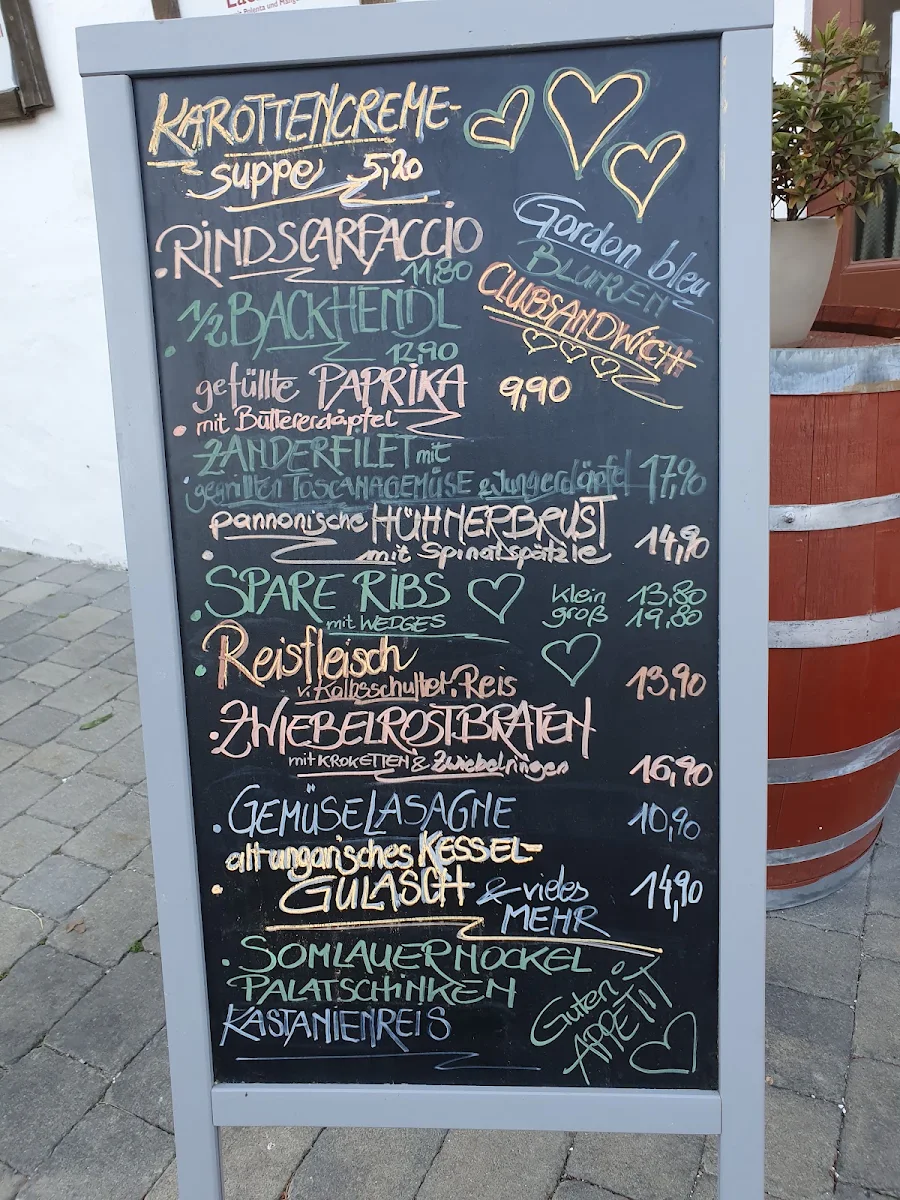 KAROTTENCREME-
suppe 5,20
Gordon bleu
BLUNZEN
CLUBSANDWICH
RINDSCARPACCIO
11,80
1/2 BACKHENDL
12,90
gefüllte PAPRIKA 9,90
mit Buttererdäpfel
ZANDERFILET mit
gegrillten TOSCANAGEMÜSE & Jungerdäpfel 17,90
pannonische HÜHNERBRUST
mit Spinatspätzle 14,90
SPARE RIBS klein 13,80
mit WEDGES groß 19,80
Reisfleisch
v. Kalbsschulter. Reis 13,90
ZWIEBELROSTBRATEN
mit KROKETTEN & Zwiebelringen 16,90
GEMÜSELASAGNE 10,90
altungarisches KESSEL-
GULASCH & vieles 14,90
MEHR
SOMLAUERNOCKEL
PALATSCHINKEN
KASTANIENREIS
Guten
APPETIT